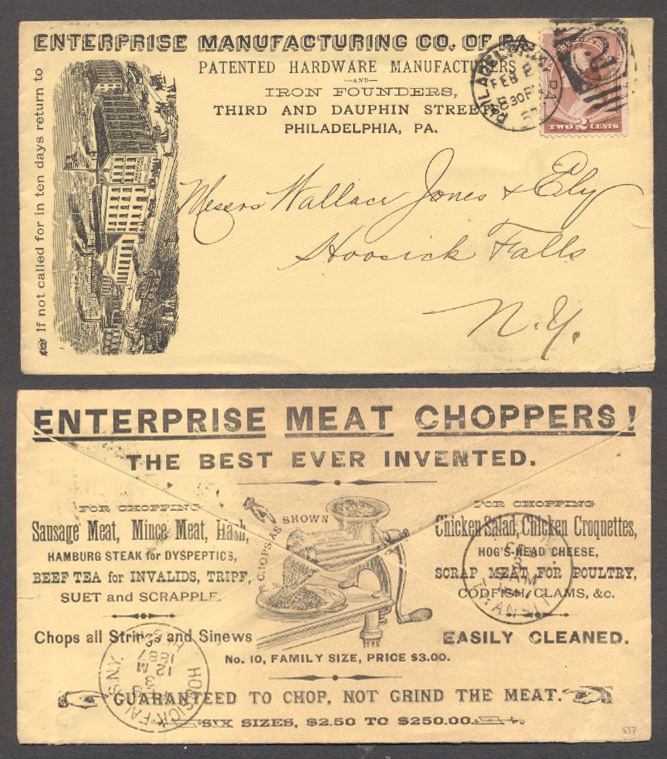 ENTERPRISE MANUFACTURING CO. OF PA.
PATENTED HARDWARE MANUFACTURERS
—AND—
IRON FOUNDERS,
THIRD AND DAUPHIN STREETS
PHILADELPHIA, PA.
If not called for in ten days return to
PHILADELPHIA
FEB 2
8 30 P
PA
TWO 2 CENTS
Messrs Wallace Jones & Ely
Hoosick Falls
N.Y.
ENTERPRISE MEAT CHOPPERS!
THE BEST EVER INVENTED.
FOR CHOPPING
Sausage Meat, Mince Meat, Hash,
HAMBURG STEAK for DYSPEPTICS,
BEEF TEA for INVALIDS, TRIPE,
SUET and SCRAPPLE.
Chops all Strings and Sinews
CHOPS AS SHOWN
FOR CHOPPING
Chicken Salad, Chicken Croquettes,
HOG'S-HEAD CHEESE,
SCRAP MEAT FOR POULTRY,
CODFISH, CLAMS, &c.
EASILY CLEANED.
TRANSIT
No. 10, FAMILY SIZE, PRICE $3.00.
GUARANTEED TO CHOP, NOT GRIND THE MEAT.
SIX SIZES, $2.50 TO $250.00.
HOOSICK FALLS, N.Y.
3
12 M
1887
637